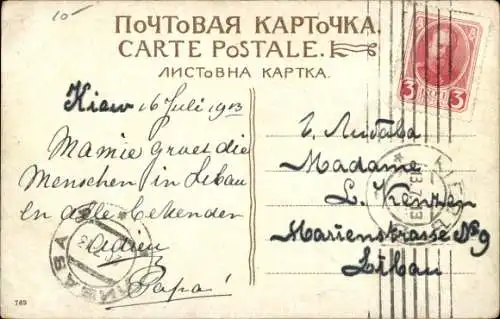 10-
ПОЧТОВАЯ КАРТОЧКА.
CARTE POSTALE.
ЛИСТОВНА КАРТКА.
3 3
Kiew 16 Juli 1913
Mamie gruet die
Menschen in Libau
en alle bekenden
Adieu
Papa!
г. Либава
Madame
L.
Marienstrasse № 9
Libau
ЛИБАВА
769